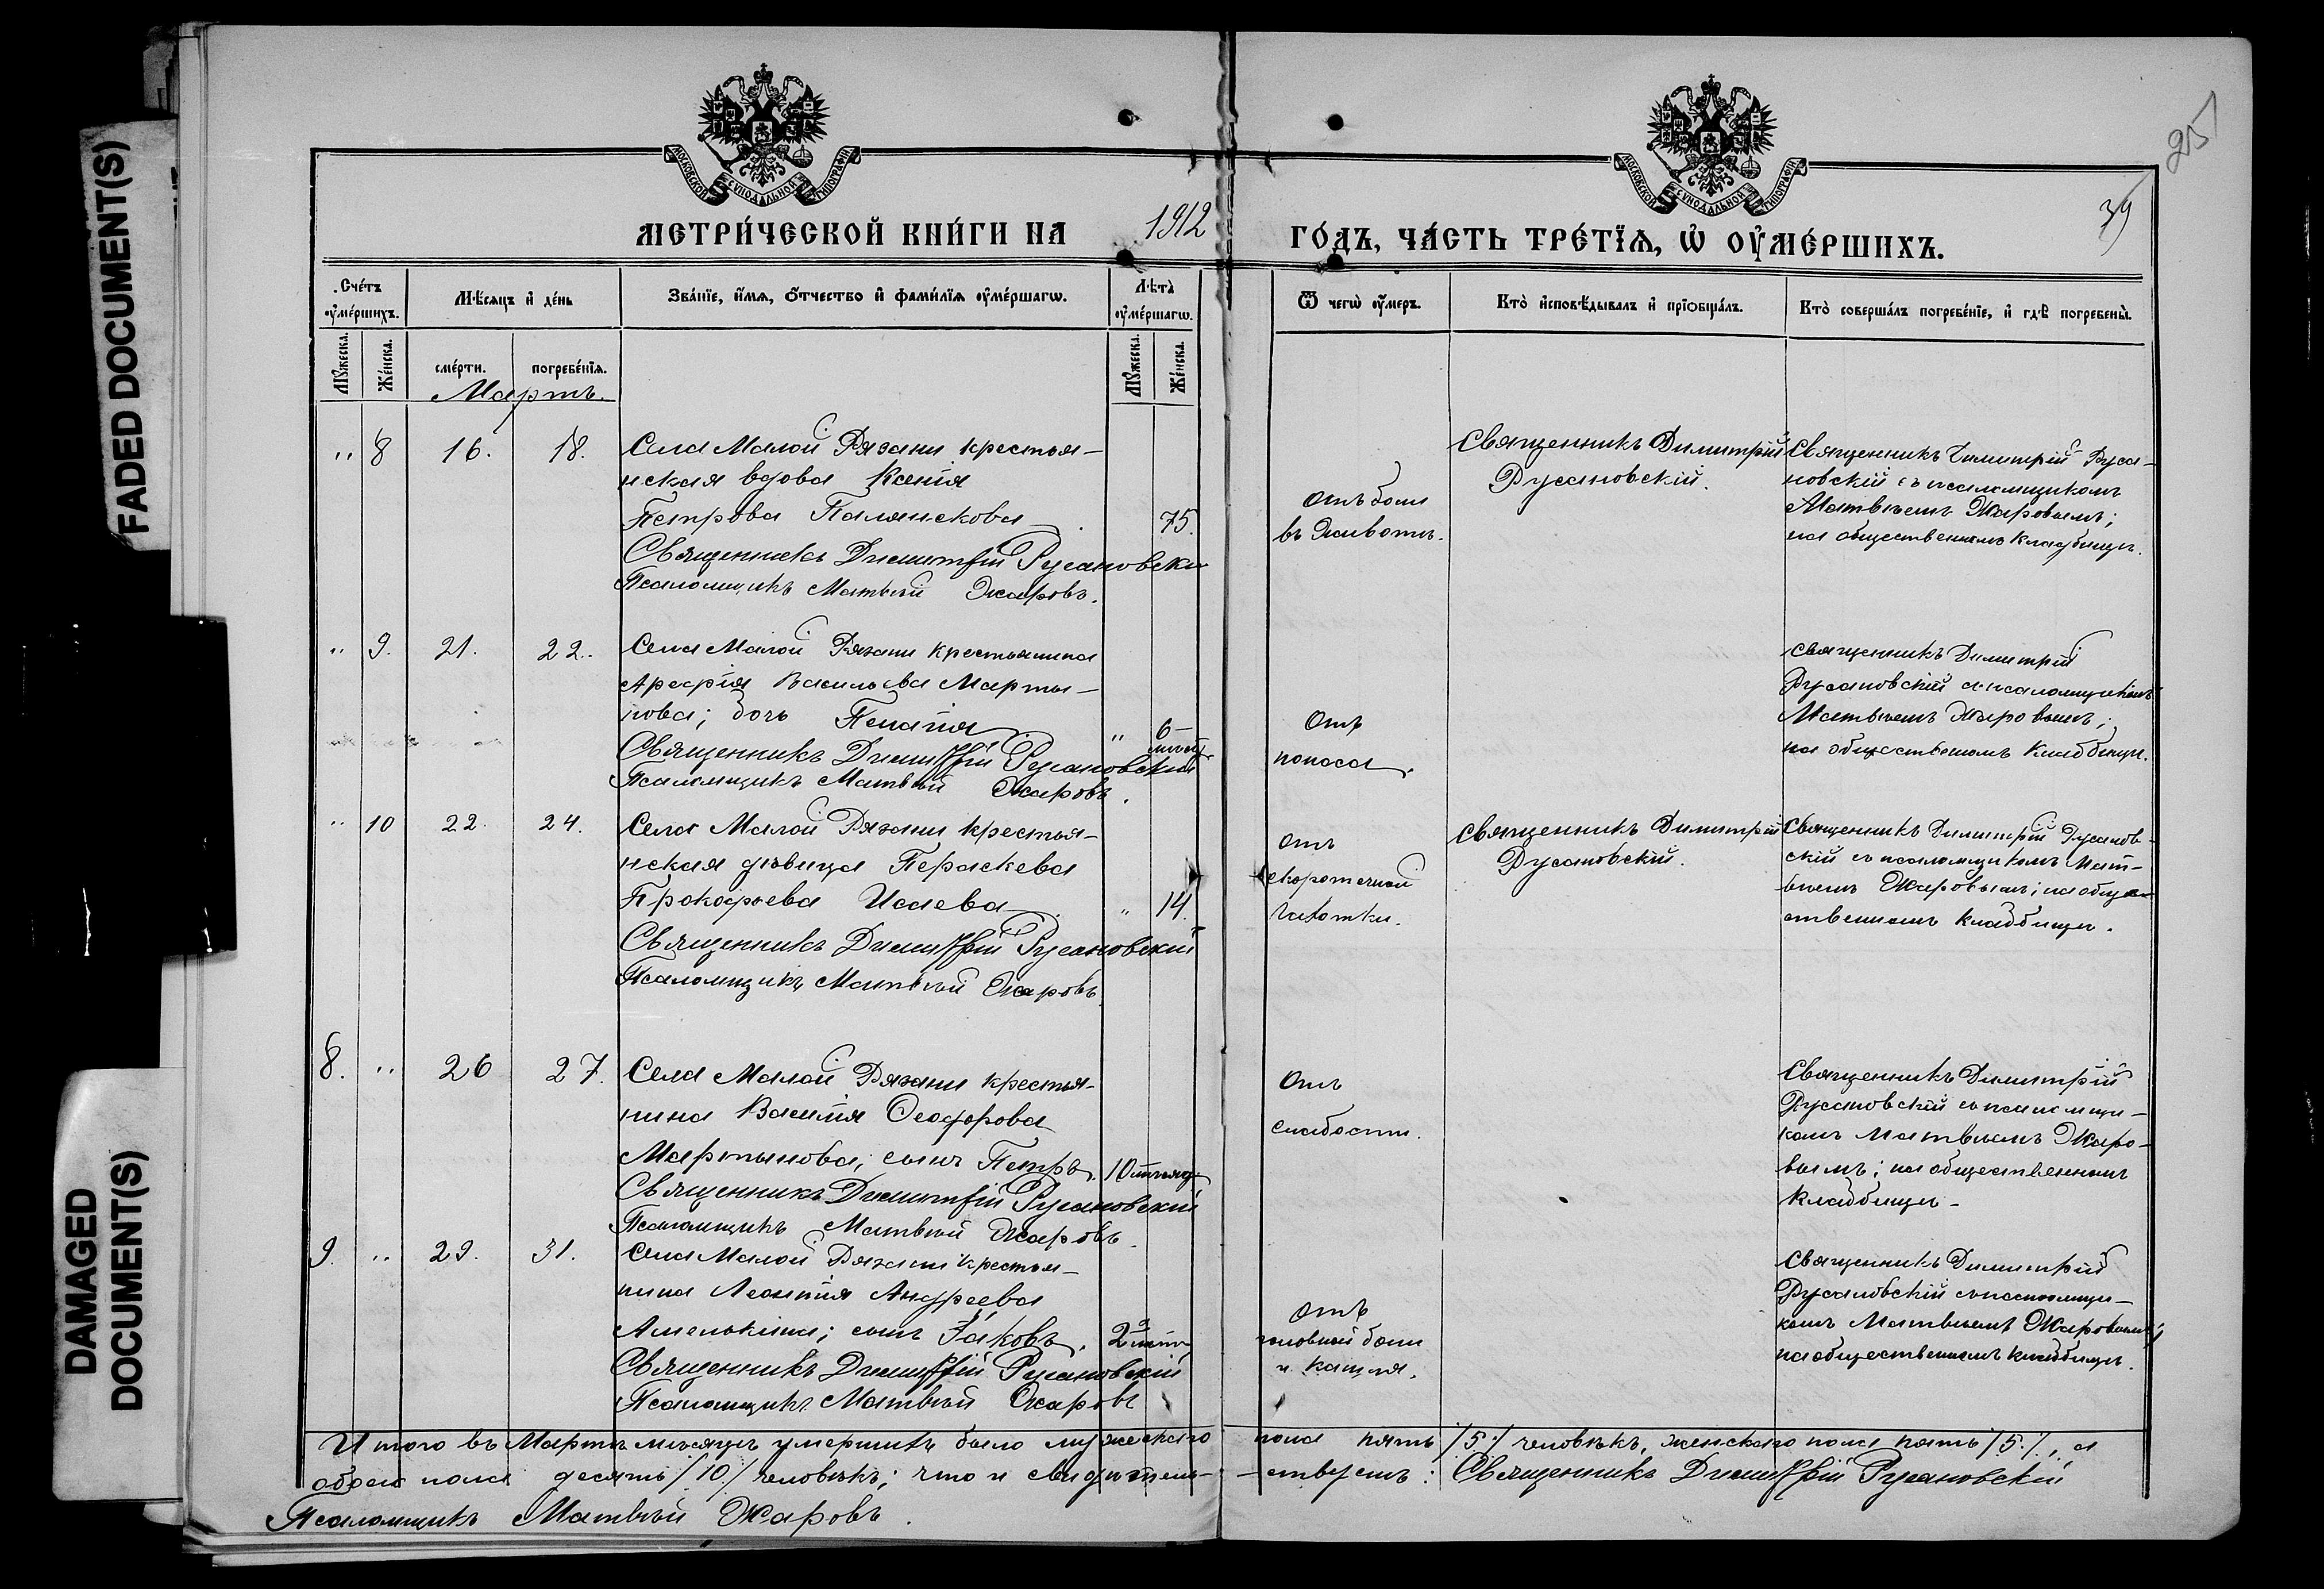 FADED DOCUMENT(S)
DAMAGED DOCUMENT(S)
МОСКОВСКОЙ СѴНОДАЛЬНОЙ ТИПОГРАФІИ
МОСКОВСКОЙ СѴНОДАЛЬНОЙ ТИПОГРАФІИ
МЕТРИ́ЧЕСКОЙ КНИ́ГИ НА 1912
ГО́ДЪ, ЧА́СТЬ ТРЕ́ТЇѦ, Ѡ҆ ОУ҆МЕ́РШИХЪ.
39
Сче́тъ оу҆ме́ршихъ.
Мѣ́сяцъ и҆ де́нь
Зва́нїе, и҆́мѧ, ѻ҆́тчество и҆ фами́лїѧ оу҆ме́ршагѡ.
Лѣ́та оу҆ме́ршагѡ.
Ѿ чегѡ̀ оу҆́меръ.
Кто̀ и҆сповѣ́дывалъ и҆ прїѻбща́лъ.
Кто̀ соверша́лъ погребе́нїе, и҆ гдѣ̀ погребены̀.
Мꙋ́жеска. Же́нска.
сме́рти. погребе́нїѧ.
Мꙋ́жеска. Же́нска.
Мартъ.
" 8 16. 18. Села Малой Рязани крестья-
нская вдова Ксенія
Петрова Палянскова 75.
Священникъ Димитрій Русановскій
Псаломщикъ Матвѣй Жаровъ.
Отъ боли
въ Животѣ.
Священникъ Димитрій
Русановскій.
Священникъ Димитрій Руса-
новскій съ псаломщикомъ
Матвѣемъ Жаровымъ;
на общественномъ кладбищѣ.
" 9. 21. 22. Села Малой Рязани крестьянина
Василіева Марты-
нова; дочь Пелагія " 6
Священникъ Димитрій Русановскій
Псаломщикъ Матвѣй Жаровъ.
Отъ
поноса.
Священникъ Димитрій
Русановскій съ псаломщикомъ
Матвѣемъ Жаровымъ;
на общественомъ кладбищѣ.
" 10 22. 24. Села Малой Рязани крестья-
нская дѣвица Пераскева
Прокофьева Исаева " 14.
Священникъ Димитрій Русановскій
Псаломщикъ Матвѣй Жаровъ
Отъ
скоротечной
чахотки.
Священникъ Димитрій
Русановскій.
Священникъ Димитрій Русанов-
скій съ псаломщикомъ Мат-
вѣемъ Жаровымъ; на обще-
ственномъ кладбищѣ.
8. " 26 27. Села Малой Рязани крестья-
нина Василія Ѳеодорова
Мартынова; сынъ Петръ. 10
Священникъ Димитрій Русановскій
Псаломщикъ Матвѣй Жаровъ.
Отъ
слабости.
Священникъ Димитрій
Русановскій съ псаломщи-
комъ Матвѣемъ Жаро-
вымъ; на общественномъ
кладбищѣ-
9. " 29. 31. Села Малой Рязани крестья-
нина Леонтія Андреева
Амелькина; сынъ Іаковъ. 2
Священникъ Димитрій Русановскій
Псаломщикъ Матвѣй Жаровъ
Отъ
головной боли
и кашля.
Священникъ Димитрій
Русановскій съ псаломщи-
комъ Матвѣемъ Жаровымъ;
на общественномъ кладбищѣ.
Итого въ Мартѣ мѣсяцѣ умершихъ было мужескаго пола пять /5./ человѣкъ, женскаго пола пять /5./, а
обоего пола десять /10/ человѣкъ; что и свидѣтель-ствуемъ: Священникъ Димитрій Русановскій
Псаломщикъ Матвѣй Жаровъ.